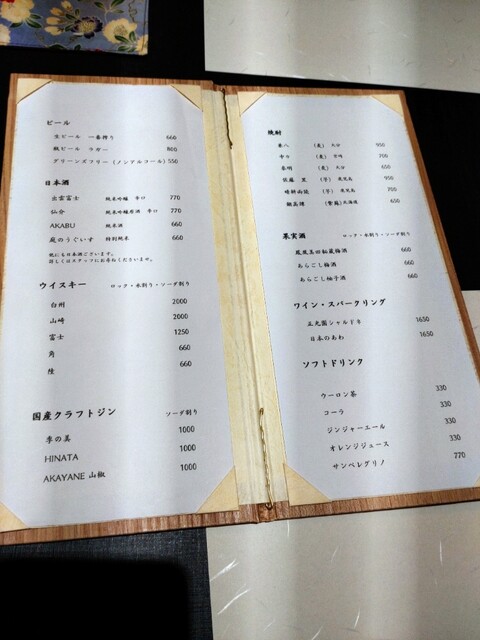 ビール
生ビール 一番搾り 660
瓶ビール ラガー 800
グリーンズフリー (ノンアルコール) 550
日本酒
出雲富士 純米吟醸 辛口 770
仙介 純米吟醸原酒 辛口 770
AKABU 純米酒 660
庭のうぐいす 特別純米 660
他にも日本酒ございます。
詳しくはスタッフにお尋ねくださいませ。
ウイスキー ロック・水割り・ソーダ割り
白州 2000
山崎 2000
富士 1250
角 660
陸 660
国産クラフトジン ソーダ割り
季の美 1000
HINATA 1000
AKAYANE 山椒 1000
焼酎
兼八 (麦) 大分 950
中々 (麦) 宮崎 700
(麦) 大分 650
佐藤 黒 (芋) 鹿児島 950
晴耕雨読 (芋) 鹿児島 700
鍛高譚 (紫蘇) 北海道 650
果実酒 ロック・水割り・ソーダ割り
鳳凰美田 梅酒 660
あらごし梅酒 660
あらごし柚子酒 660
ワイン・スパークリング
シャルドネ 1650
日本のあわ 1650
ソフトドリンク
ウーロン茶 330
コーラ 330
ジンジャーエール 330
オレンジジュース 330
サンペレグリノ 770